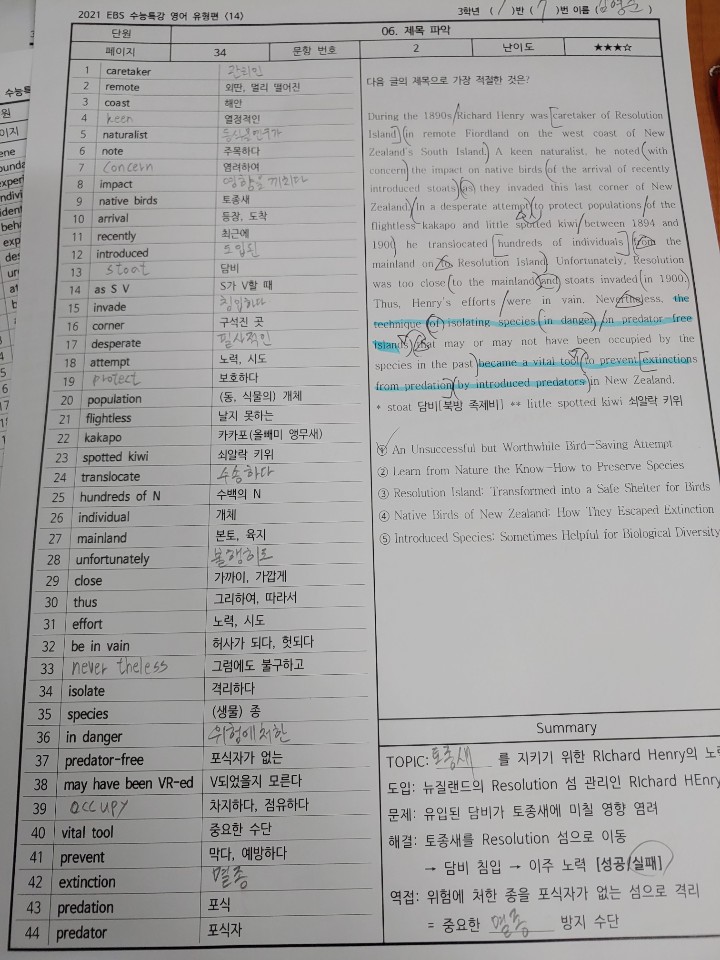 2021 EBS 수능특강 영어 유형편 <14>
3학년 ( 1 )반 ( 7 )번 이름 (
단원 06. 제목 파악
페이지 34 문항 번호 2 난이도 ★★★☆
1 caretaker 관리인
2 remote 외딴, 멀리 떨어진
3 coast 해안
4 keen 열정적인
5 naturalist 동식물연구가
6 note 주목하다
7 concern 염려하여
8 impact 영향을 끼치다
9 native birds 토종새
10 arrival 등장, 도착
11 recently 최근에
12 introduced 도입된
13 stoat 담비
14 as S V S가 V할 때
15 invade 침입하다
16 corner 구석진 곳
17 desperate 필사적인
18 attempt 노력, 시도
19 protect 보호하다
20 population (동, 식물의) 개체
21 flightless 날지 못하는
22 kakapo 카카포(올빼미 앵무새)
23 spotted kiwi 쇠알락 키위
24 translocate 수송하다
25 hundreds of N 수백의 N
26 individual 개체
27 mainland 본토, 육지
28 unfortunately 불행히도
29 close 가까이, 가깝게
30 thus 그리하여, 따라서
31 effort 노력, 시도
32 be in vain 허사가 되다, 헛되다
33 never theless 그럼에도 불구하고
34 isolate 격리하다
35 species (생물) 종
36 in danger 위험에 처한
37 predator-free 포식자가 없는
38 may have been VR-ed V되었을지 모른다
39 occupy 차지하다, 점유하다
40 vital tool 중요한 수단
41 prevent 막다, 예방하다
42 extinction 멸종
43 predation 포식
44 predator 포식자
다음 글의 제목으로 가장 적절한 것은?
During the 1890s Richard Henry was caretaker of Resolution
Island in remote Fiordland on the west coast of New
Zealand's South Island. A keen naturalist, he noted with
concern the impact on native birds of the arrival of recently
introduced stoats as they invaded this last corner of New
Zealand. In a desperate attempt to protect populations of the
flightless kakapo and little spotted kiwi between 1894 and
1900, he translocated hundreds of individuals from the
mainland on to Resolution Island. Unfortunately, Resolution
was too close to the mainland and stoats invaded in 1900.
Thus, Henry's efforts were in vain. Nevertheless, the
technique of isolating species in danger in predator-free
islands that may or may not have been occupied by the
species in the past became a vital tool to prevent extinctions
from predation by introduced predators in New Zealand.
* stoat 담비[북방 족제비] ** little spotted kiwi 쇠알락 키위
① An Unsuccessful but Worthwhile Bird-Saving Attempt
② Learn from Nature the Know-How to Preserve Species
③ Resolution Island: Transformed into a Safe Shelter for Birds
④ Native Birds of New Zealand: How They Escaped Extinction
⑤ Introduced Species: Sometimes Helpful for Biological Diversity
Summary
TOPIC: 토종새 를 지키기 위한 RIchard Henry의 노
도입: 뉴질랜드의 Resolution 섬 관리인 RIchard HEnry
문제: 유입된 담비가 토종새에 미칠 영향 염려
해결: 토종새를 Resolution 섬으로 이동
→ 담비 침입 → 이주 노력 [성공/실패]
역접: 위험에 처한 종을 포식자가 없는 섬으로 격리
= 중요한 멸종 방지 수단